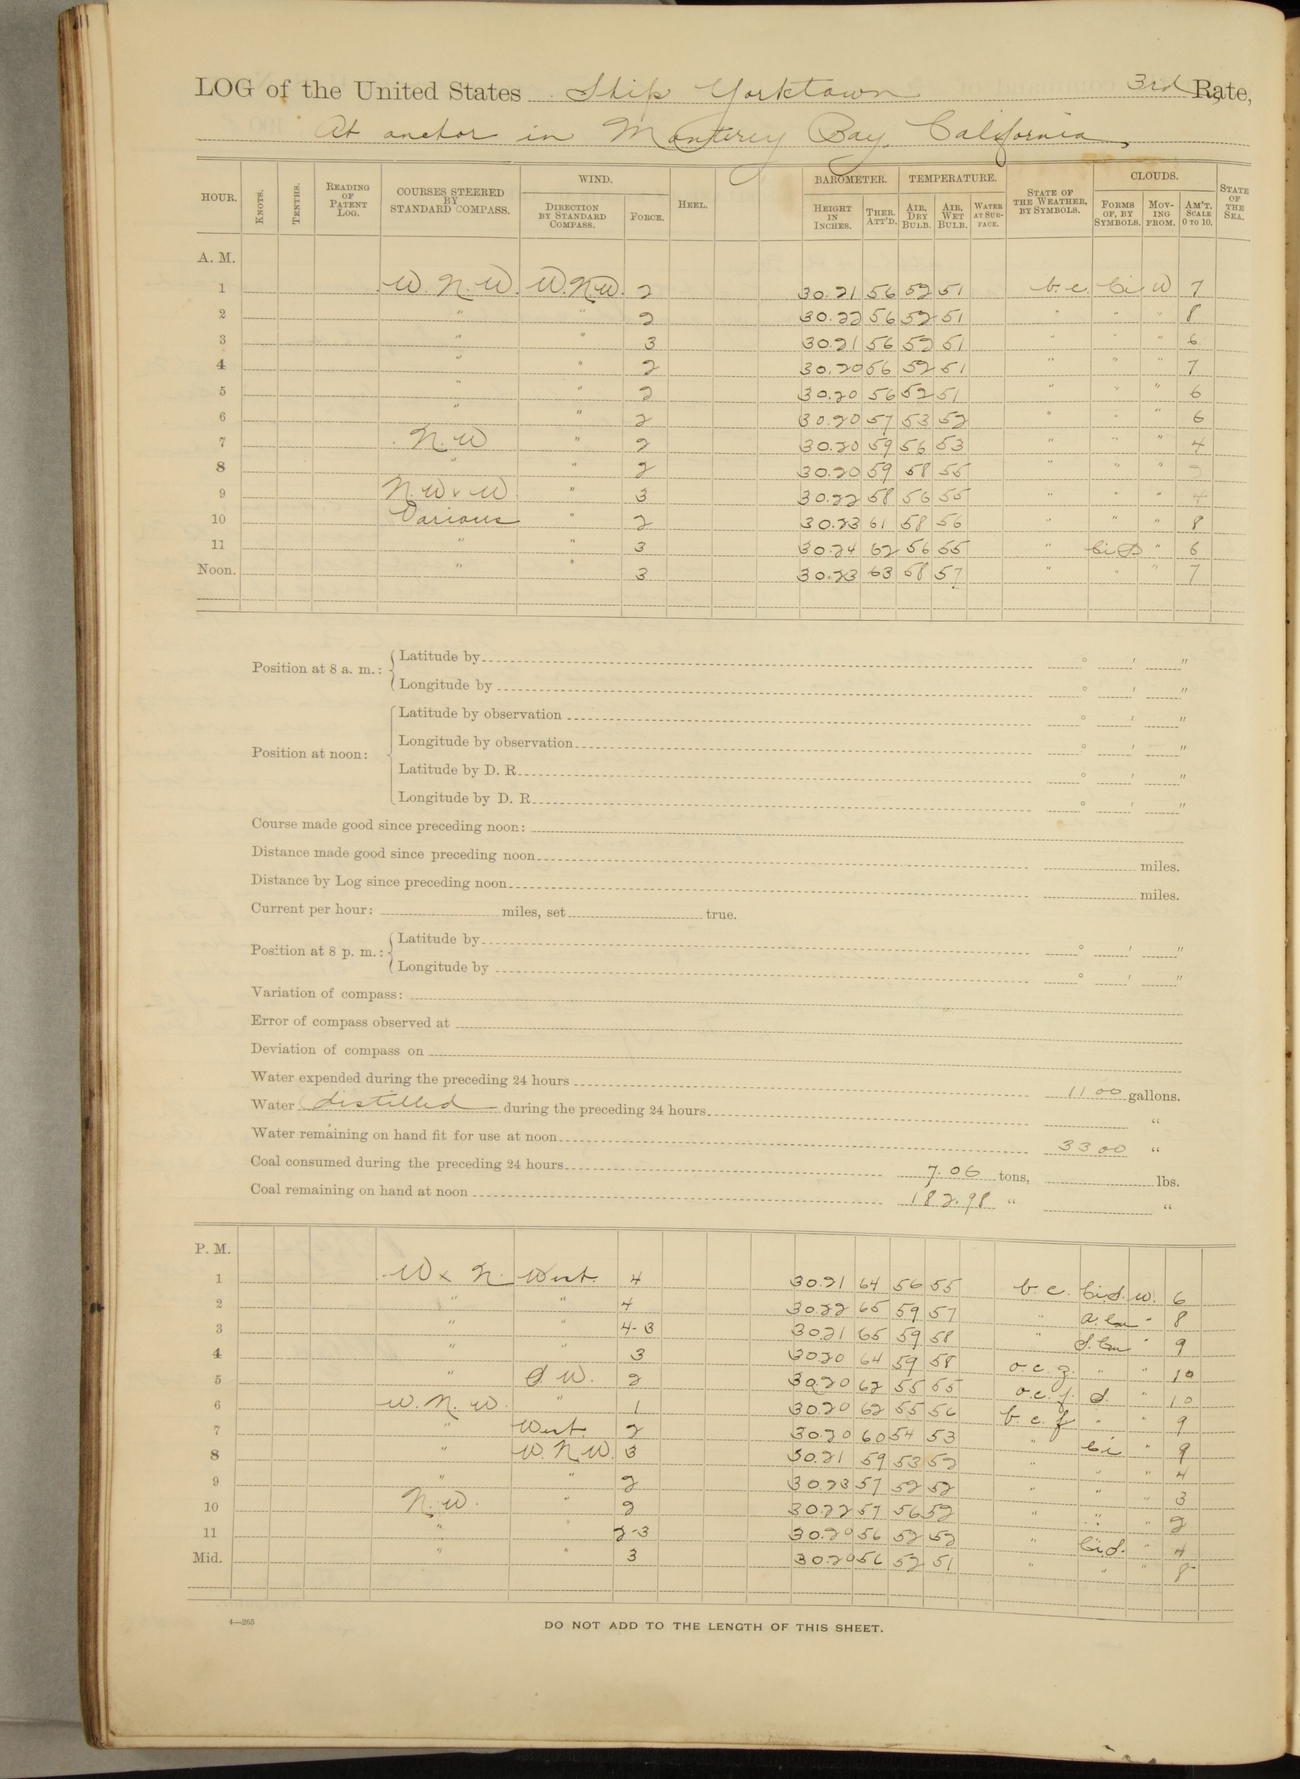 LOG of the United States Ship Yorktown 3rd Rate,
At anchor in Monterey Bay, California,
HOUR. KNOTS. TENTHS. READING OF PATENT LOG. COURSES STEERED BY STANDARD COMPASS. WIND. DIRECTION BY STANDARD COMPASS. FORCE. HEEL. BAROMETER. HEIGHT IN INCHES. THER. ATT'D. TEMPERATURE. AIR, DRY BULB. AIR, WET BULB. WATER AT SURFACE. STATE OF THE WEATHER, BY SYMBOLS. CLOUDS. FORMS OF, BY SYMBOLS. MOVING FROM. AM'T. SCALE 0 TO 10. STATE OF THE SEA.
A. M.
1 W. N. W. W. N. W. 2 30.21 56 52 51 b.c. Ci W 7
2 " " 2 30.22 56 52 51 " " " 8
3 " " 3 30.21 56 52 51 " " " 6
4 " " 2 30.20 56 52 51 " " " 7
5 " " 2 30.20 56 52 51 " " " 6
6 " " 2 30.20 57 53 52 " " " 6
7 N. W " 2 30.20 59 56 53 " " " 4
8 " " 2 30.20 59 58 55 " " "
9 N. W x W. " 3 30.22 58 56 55 " " " 4
10 Various " 2 30.23 61 58 56 " " " 8
11 " " 3 30.24 62 56 55 " Ci S " 6
Noon. " " 3 30.23 63 58 57 " " " 7
Position at 8 a. m.: Latitude by ° ' "
Longitude by ° ' "
Position at noon: Latitude by observation ° ' "
Longitude by observation ° ' "
Latitude by D. R. ° ' "
Longitude by D. R. ° ' "
Course made good since preceding noon:
Distance made good since preceding noon miles.
Distance by Log since preceding noon miles.
Current per hour: miles, set true.
Position at 8 p. m.: Latitude by ° ' "
Longitude by ° ' "
Variation of compass:
Error of compass observed at
Deviation of compass on
Water expended during the preceding 24 hours 1100 gallons.
Water distilled during the preceding 24 hours "
Water remaining on hand fit for use at noon 3300 "
Coal consumed during the preceding 24 hours 7.06 tons, lbs.
Coal remaining on hand at noon 182.98 " "
P. M.
1 W x N West 4 30.21 64 56 55 b.c. Ci S. W. 6
2 " " 4 30.22 65 59 57 " a. cu " 8
3 " " 4-3 30.21 65 59 58 " S. Cu " 9
4 " " 3 30.20 64 59 58 o.c.z. " " 10
5 " S. W. 2 30.20 62 55 55 o.c.f. S. " 10
6 W. N. W. " 1 30.20 62 55 56 b.c.f " " 9
7 " West 2 30.20 60 54 53 " Ci " 9
8 " W. N. W. 3 30.21 59 53 52 " " " 4
9 " " 2 30.23 57 52 52 " " " 3
10 N. W. " 2 30.22 57 56 52 " " " 2
11 " " 2-3 30.20 56 52 52 " Ci S. " 4
Mid. " " 3 30.20 56 52 51 " " " 8
4—265
DO NOT ADD TO THE LENGTH OF THIS SHEET.